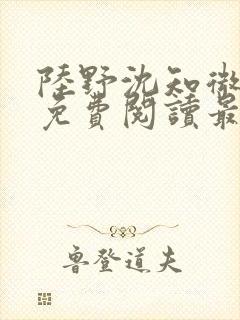 陸野沈知微
免費閱讀最
魯登道夫